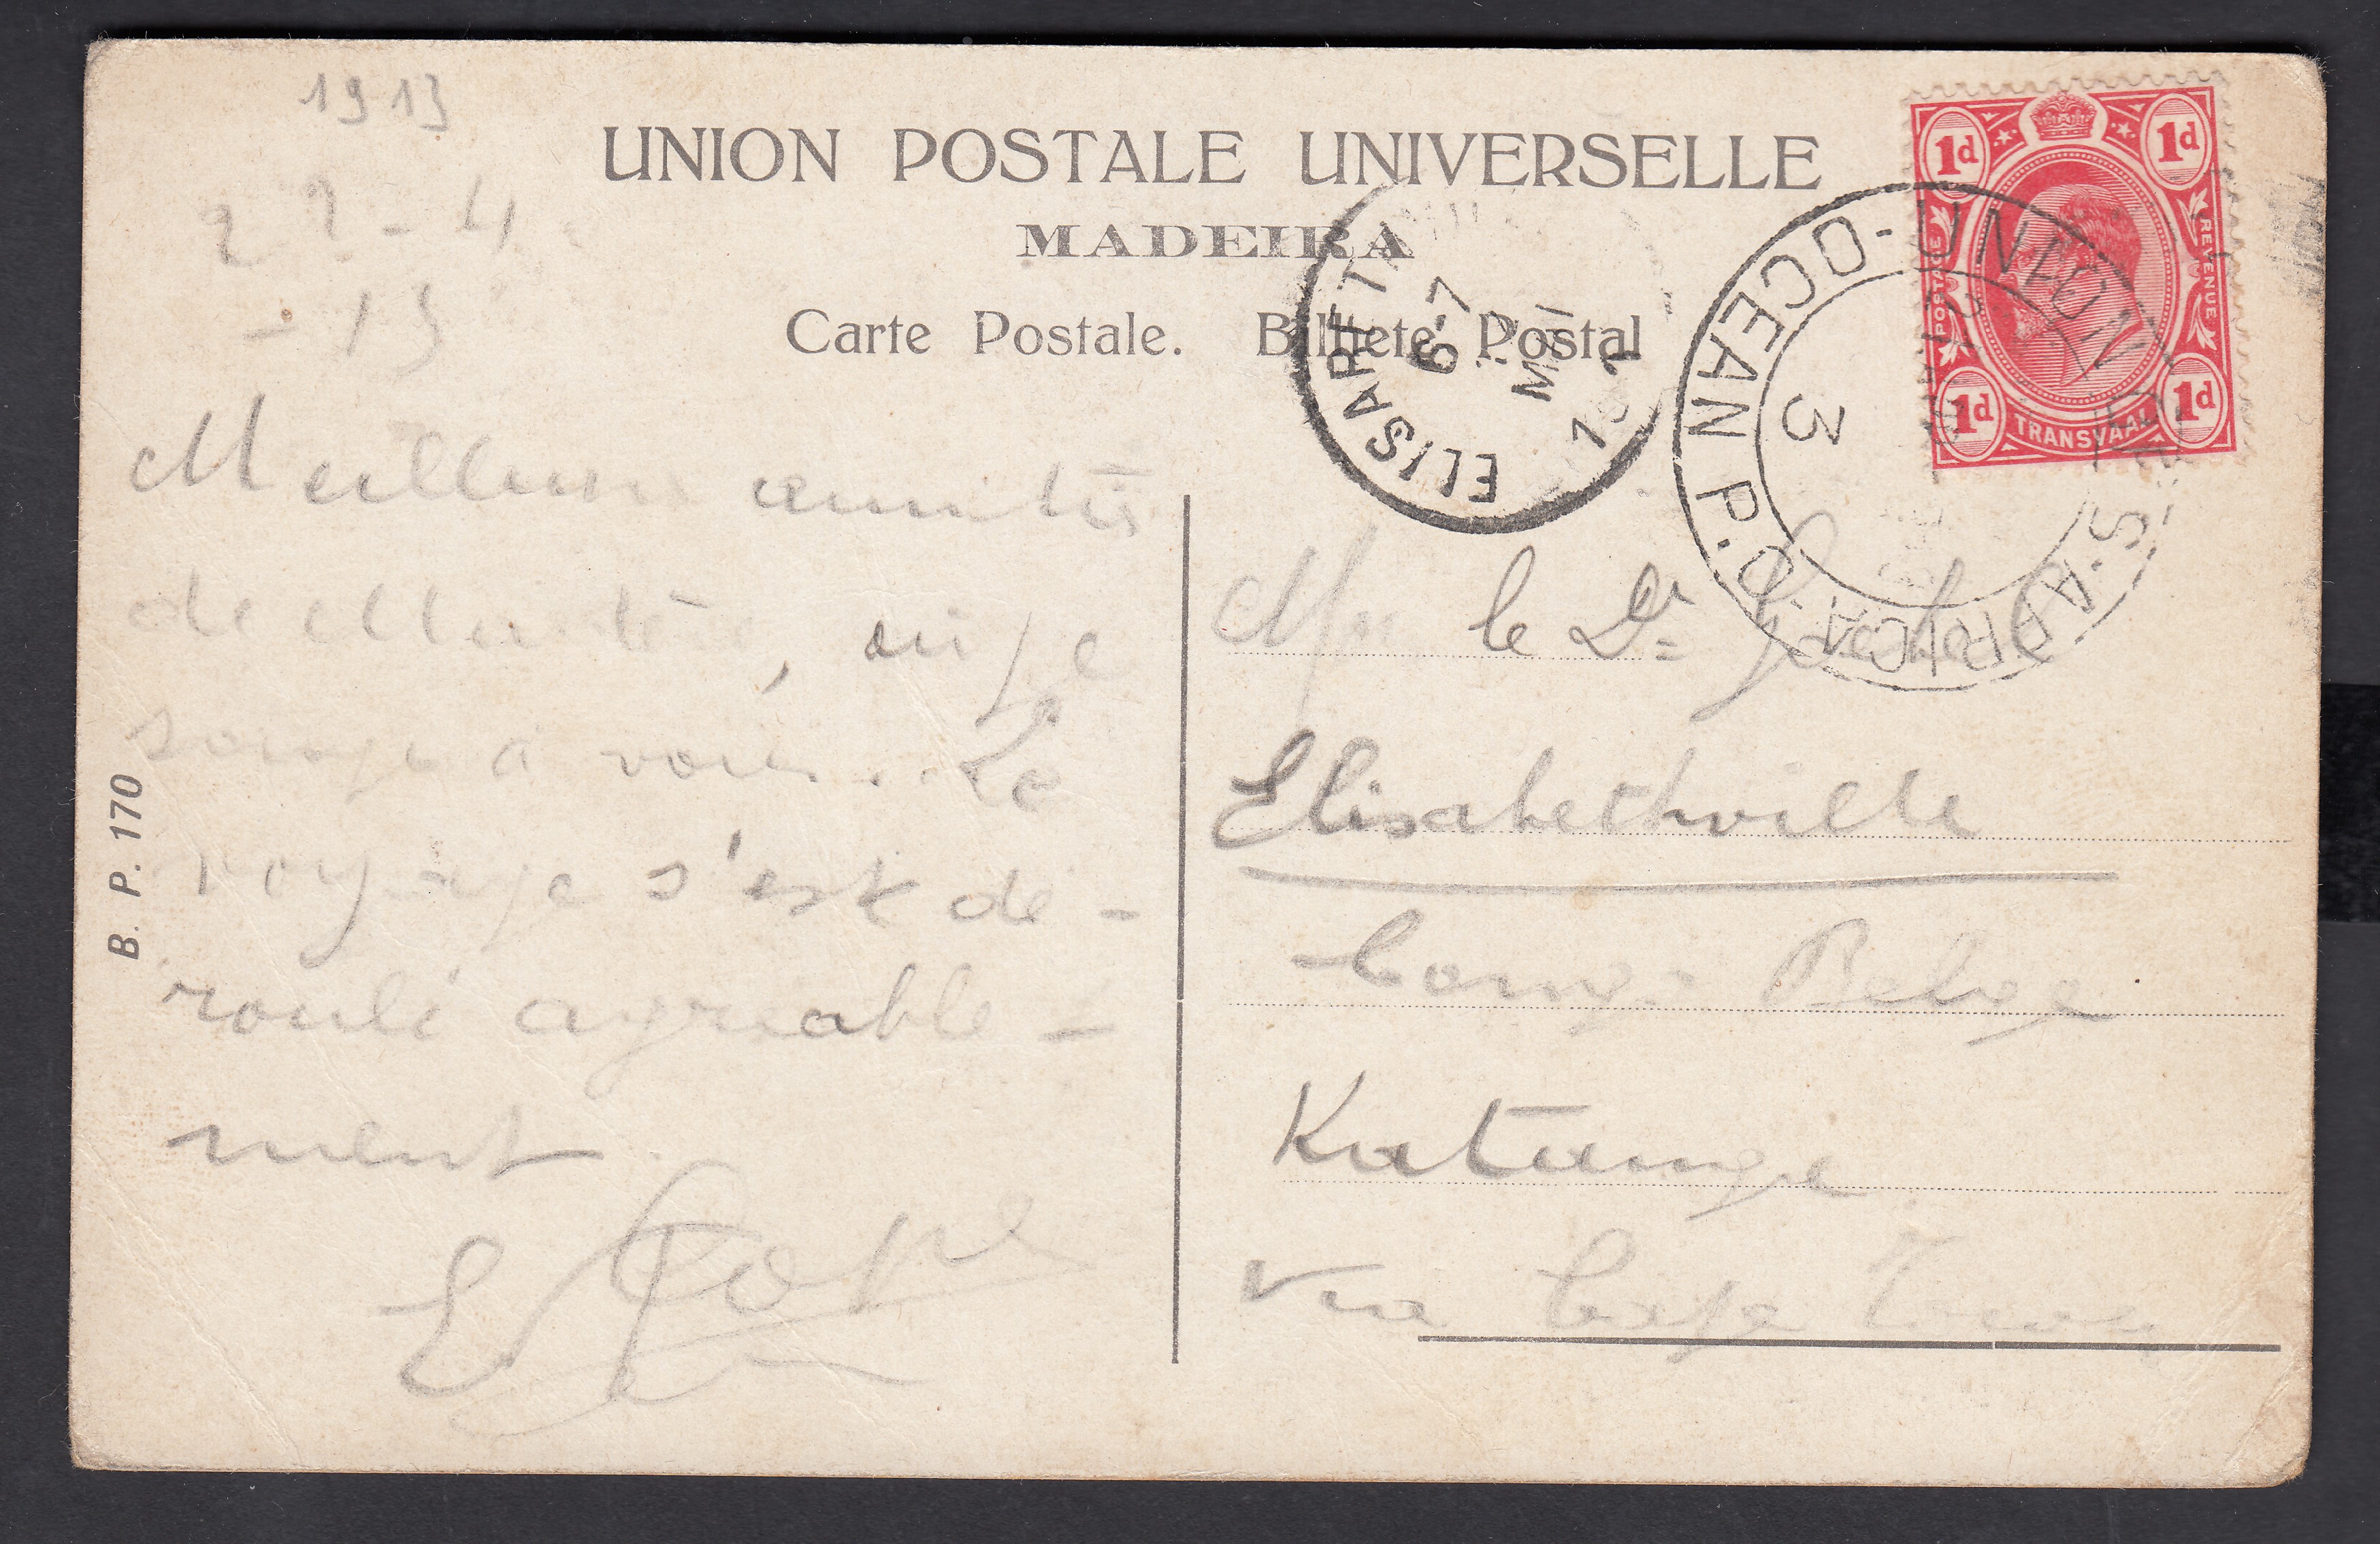 1913
UNION POSTALE UNIVERSELLE
MADEIRA
Carte Postale. Bilhete Postal
22-4-
-13
Meilleures amitiés
de Madère, où je
songe à vous. Le
voyage s'est dé-
roulé agréable-
ment.
E
B. P. 170
ELISABETH
6-7
MAI
OCEAN P.O. UNION OF S. AFRICA
3
1d 1d
POSTAGE REVENUE
1d 1d
TRANSVAAL
Mr le Dr
Elisabethville
Congo Belge
Katanga
via Cape Town